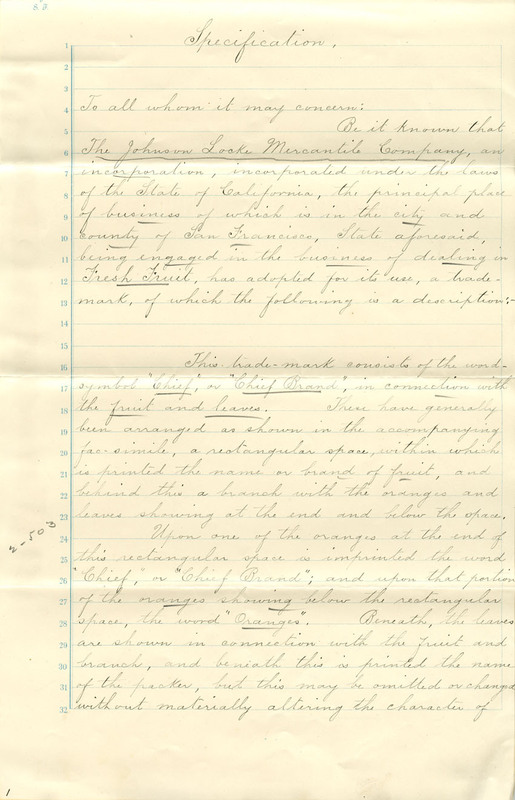 Specification.
1
2
3
4 To all whom it may concern:
5 Be it known that
6 The Johnson Locke Mercantile Company, an
7 incorporation, incorporated under the laws
8 of the State of California, the principal place
9 of business of which is in the city and
10 county of San Francisco, State aforesaid,
11 being engaged in the business of dealing in
12 Fresh Fruit, has adopted for its use, a trade-
13 mark, of which the following is a description:-
14
15
16 This trade-mark consists of the word-
17 symbol "Chief", or "Chief Brand", in connection with
18 the fruit and leaves. These have generally
19 been arranged as shown in the accompanying
20 fac-simile, a rectangular space, within which
21 is printed the name or brand of fruit, and
22 behind this a branch with the oranges and
23 leaves showing at the end and below the space.
24 Upon one of the oranges at the end of
25 this rectangular space is imprinted the word
26 "Chief," or "Chief Brand"; and upon that portion
27 of the oranges showing below the rectangular
28 space, the word "Oranges". Beneath, the leaves
29 are shown in connection with the fruit and
30 branch, and beneath this is printed the name
31 of the packer, but this may be omitted or changed
32 without materially altering the character of
2-503
1